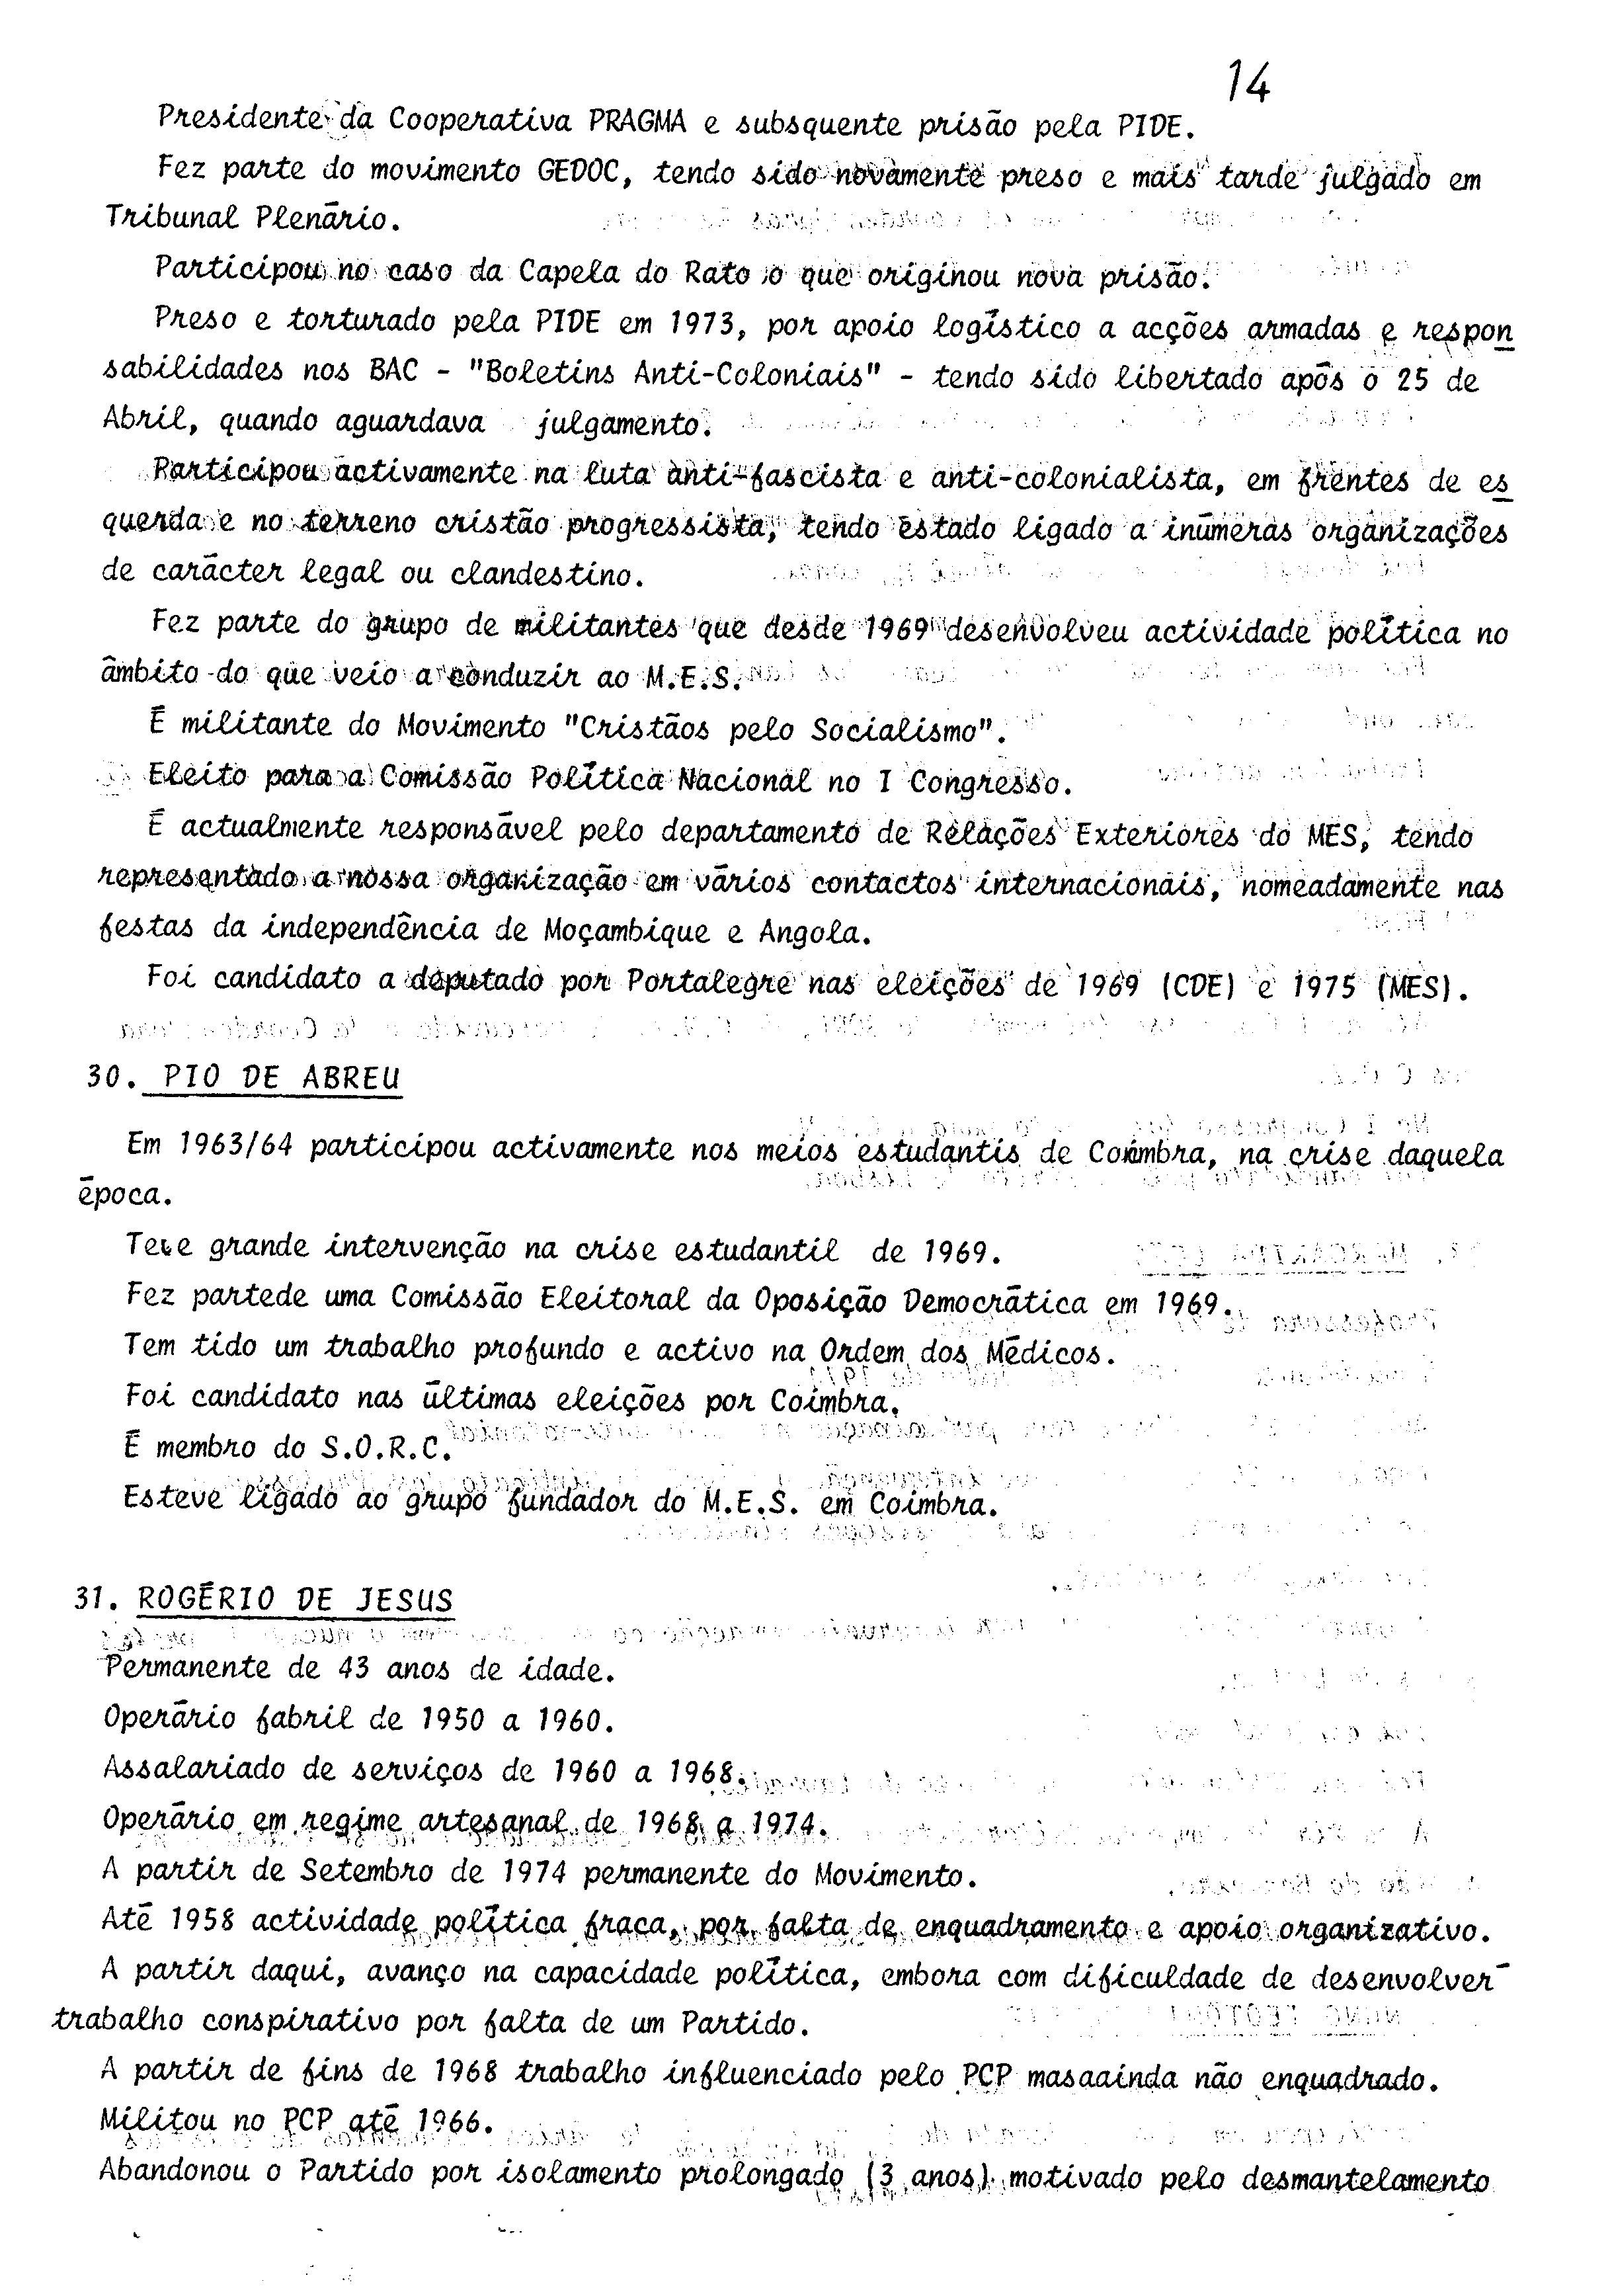 14
Presidente da Cooperativa PRAGMA e subsquente prisão pela PIDE.
Fez parte do movimento GEDOC, tendo sido novamente preso e mais tarde julgado em
Tribunal Plenário.
Participou no caso da Capela do Rato o que originou nova prisão.
Preso e torturado pela PIDE em 1973, por apoio logístico a acções armadas e respon
sabilidades nos BAC - "Boletins Anti-Coloniais" - tendo sido libertado após o 25 de
Abril, quando aguardava julgamento.
Participou activamente na luta anti-fascista e anti-colonialista, em frentes de es
querda e no terreno cristão progressista, tendo estado ligado a inúmeras organizações
de carácter legal ou clandestino.
Fez parte do grupo de militantes que desde 1969 desenvolveu actividade política no
âmbito do que veio a conduzir ao M.E.S.
É militante do Movimento "Cristãos pelo Socialismo".
Eleito para a Comissão Política Nacional no I Congresso.
É actualmente responsável pelo departamento de Relações Exteriores do MES, tendo
representado a nossa organização em vários contactos internacionais, nomeadamente nas
festas da independência de Moçambique e Angola.
Foi candidato a deputado por Portalegre nas eleições de 1969 (CDE) e 1975 (MES).
30. PIO DE ABREU
Em 1963/64 participou activamente nos meios estudantis de Coimbra, na crise daquela
época.
Teve grande intervenção na crise estudantil de 1969.
Fez partede uma Comissão Eleitoral da Oposição Democrática em 1969.
Tem tido um trabalho profundo e activo na Ordem dos Médicos.
Foi candidato nas últimas eleições por Coimbra.
É membro do S.O.R.C.
Esteve ligado ao grupo fundador do M.E.S. em Coimbra.
31. ROGÉRIO DE JESUS
Permanente de 43 anos de idade.
Operário fabril de 1950 a 1960.
Assalariado de serviços de 1960 a 1968.
Operário em regime artesanal de 1968 a 1974.
A partir de Setembro de 1974 permanente do Movimento.
Até 1958 actividade política fraca, por falta de enquadramento e apoio organizativo.
A partir daqui, avanço na capacidade política, embora com dificuldade de desenvolver
trabalho conspirativo por falta de um Partido.
A partir de fins de 1968 trabalho influenciado pelo PCP masaainda não enquadrado.
Militou no PCP até 1966.
Abandonou o Partido por isolamento prolongado (3 anos) motivado pelo desmantelamento